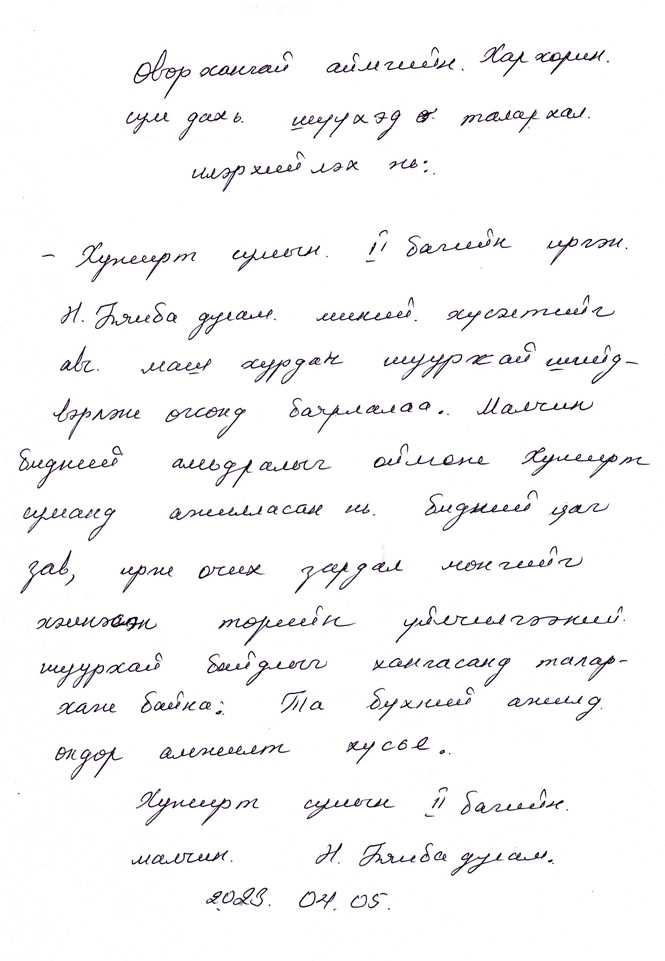 Өвөрхангай аймгийн. Хархорин.
сум дахь. шүүхэд талархал.
илэрхийлэх нь:.
- Хужирт сумын. II багийн иргэн.
Н. Бямбадулам. миний. хүсэлтийг
авч. маш хурдан шуурхай шийд-
вэрлэж өгсөнд баярлалаа.. Малчин
бидний амьдралыг ойлгож Хужирт
суманд ажилласан нь. бидний цаг
зав, ирж очих зардал мөнгийг
хэмнэсэн төрийн үйлчилгээний.
шуурхай байдлыг хангасанд талар-
хаж байна:. Та бүхний ажилд.
өндөр амжилт хүсье..
Хужирт сумын II багийн.
малчин. Н. Бямбадулам.
2023. 04. 05.